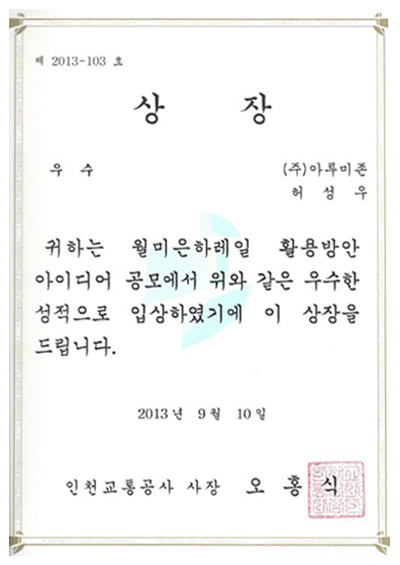 제 2013-103 호
상 장
우 수
(주)아루미존
허 성 우
귀하는 월미은하레일 활용방안
아이디어 공모에서 위와 같은 우수한
성적으로 입상하였기에 이 상장을
드립니다.
2013년 9월 10일
인천교통공사 사장 오 홍 식